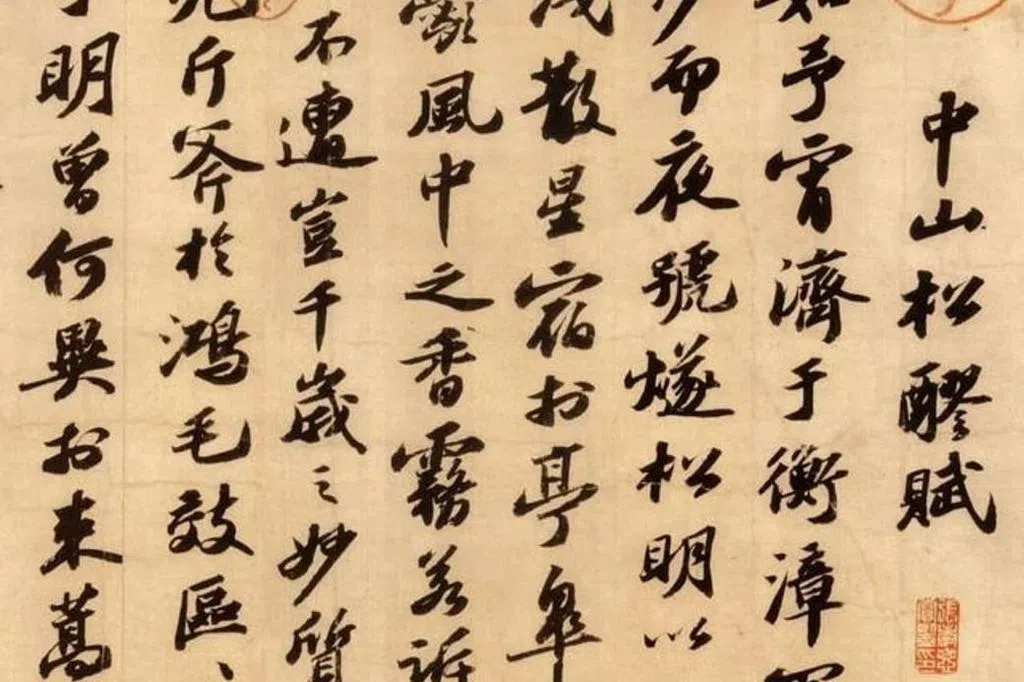 中山松醪賦
予宵濟于衡漳
而夜號燧松明以
淺散星宿於亭皋
鬱風中之香霧若訴
不遭豈千歲之妙質
死斤斧於鴻毛效區〻
明曾何異於束蒿